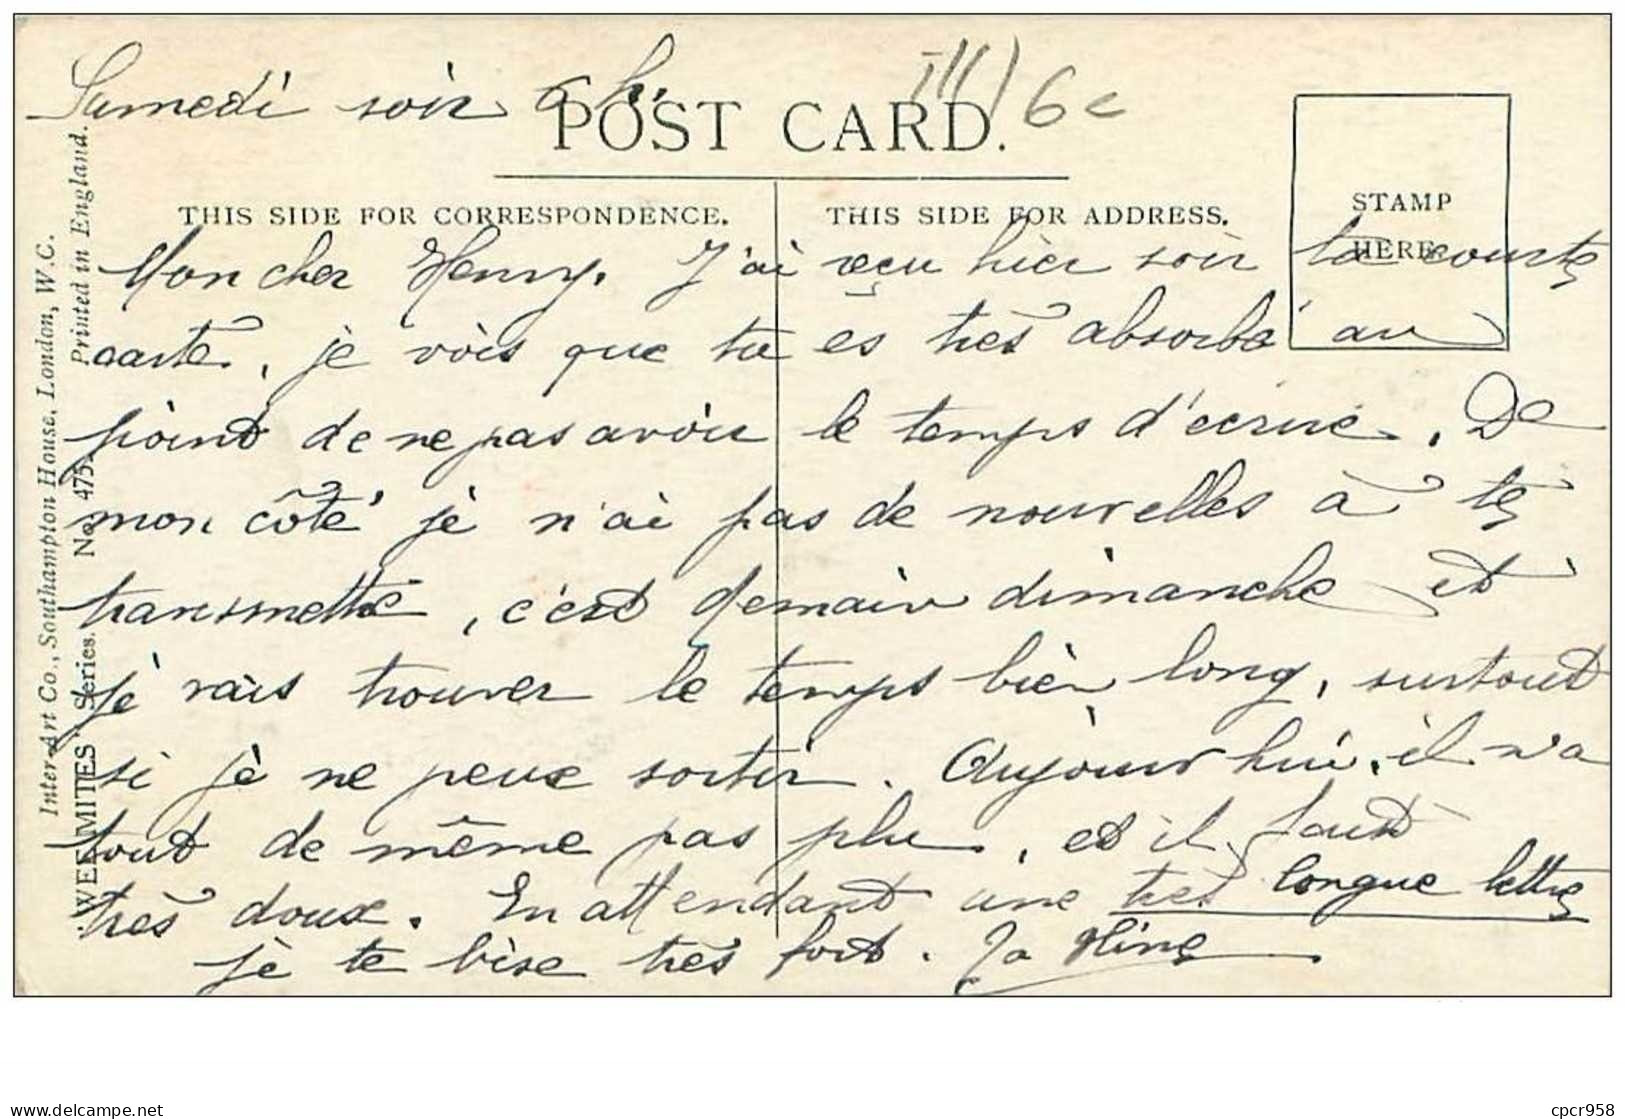 Samedi soir 6 h.
III) 6c
POST CARD.
THIS SIDE FOR CORRESPONDENCE.
THIS SIDE FOR ADDRESS.
STAMP
HERE
Mon cher Henry. J'ai reçu hier soir ta courte
carte, je vois que tu es très absorbé au
point de ne pas avoir le temps d'écrire. De
mon côté je n'ai pas de nouvelles à te
transmettre, c'est demain dimanche et
je vais trouver le temps bien long, surtout
si je ne peux sortir. Aujourd'hui, il n'a
tout de même pas plu, et il fait
très doux. En attendant une très longue lettre
je te bise très fort. Ta Mine
Inter-Art Co., Southampton House, London, W.C.
Printed in England.
"WEE MITES" Series. No. 475.
cpcr958